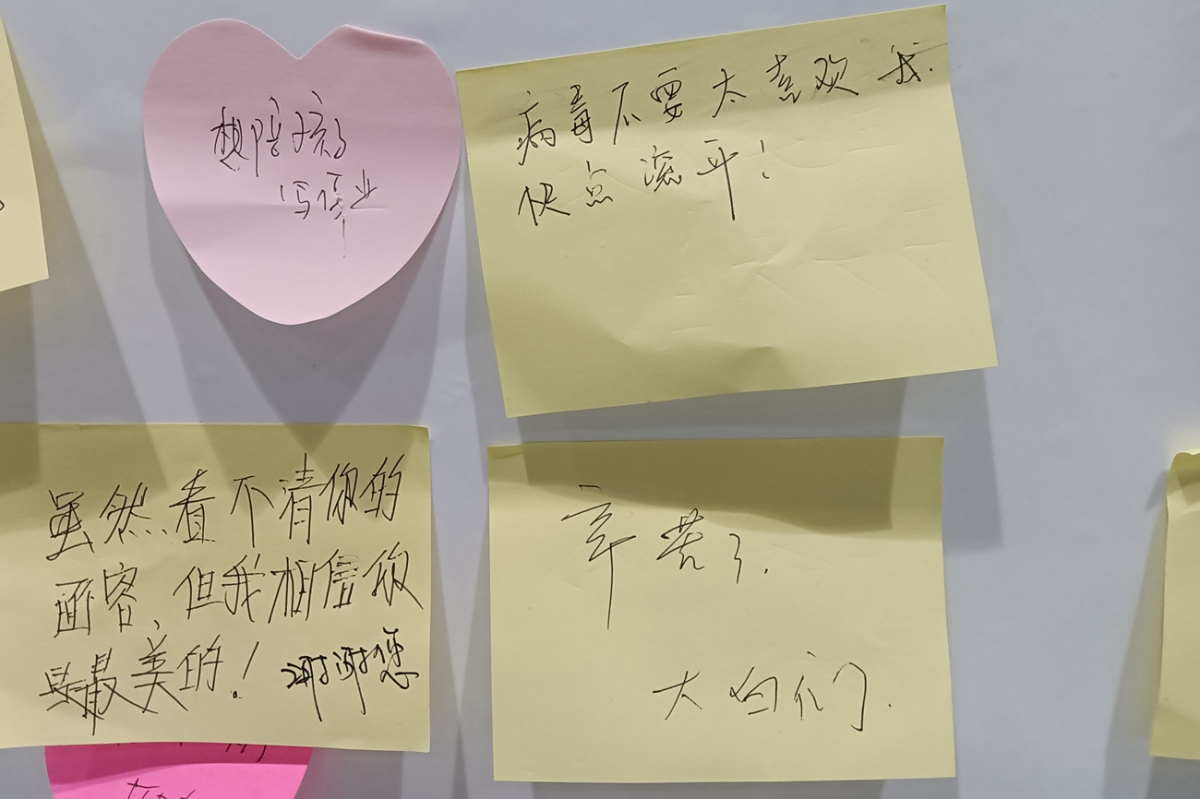 想陪孩子
写作业
病毒不要太喜欢我.
快点滚开!
虽然看不清你的
面容、但我相信你
是最美的! 谢谢您
辛苦了.
大白们.